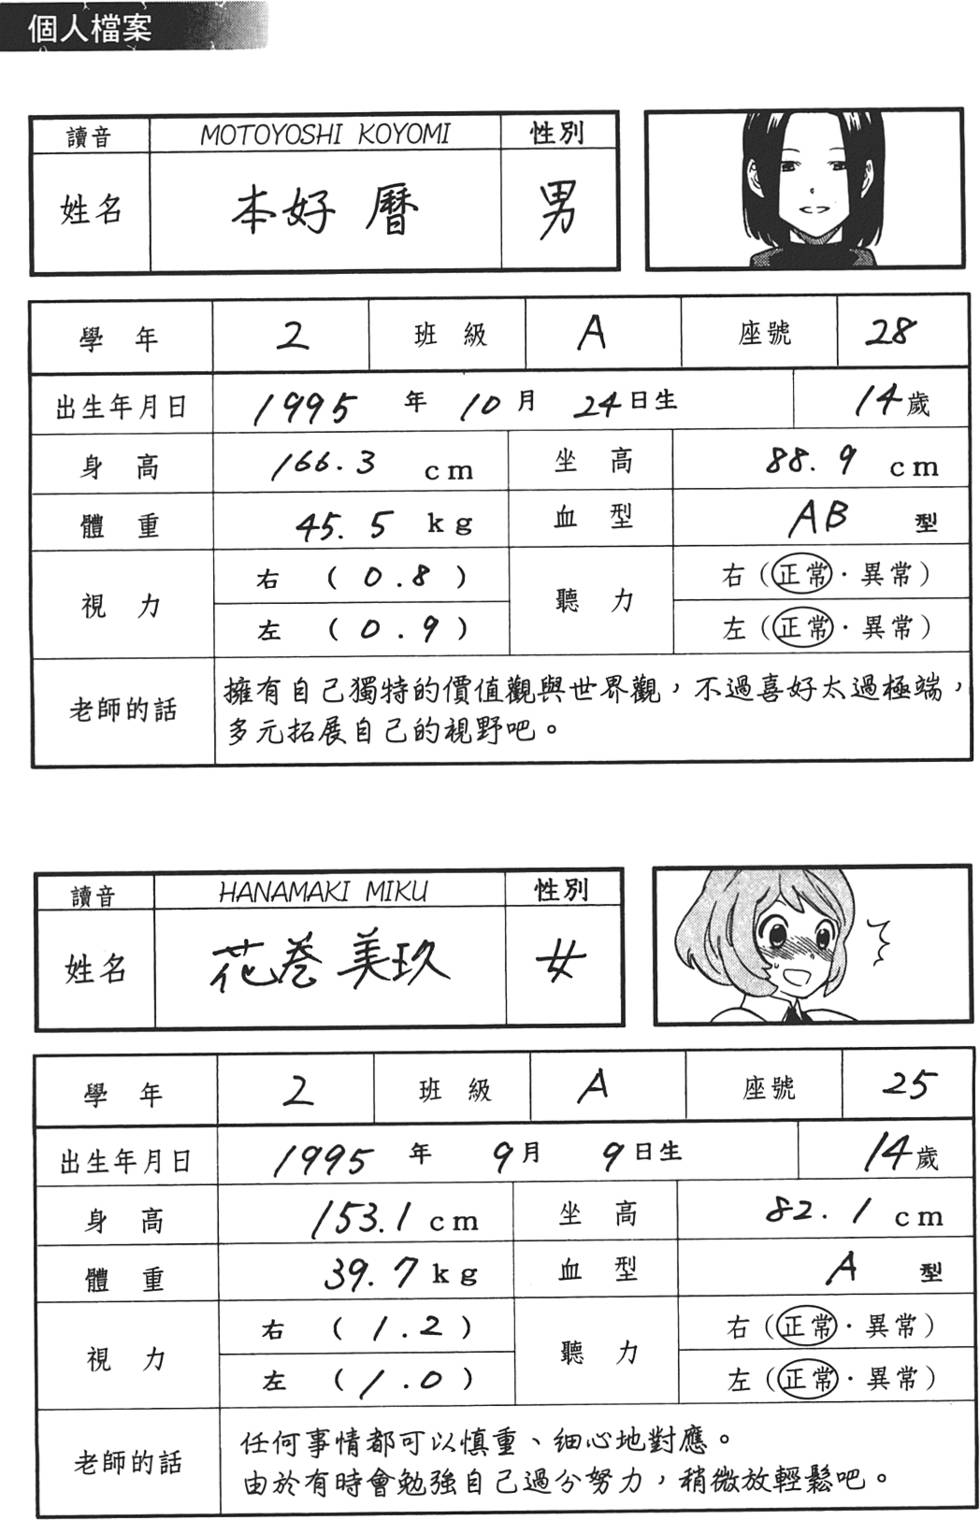 個人檔案
讀音 MOTOYOSHI KOYOMI 性別
姓名 本好 暦 男
學年 2 班級 A 座號 28
出生年月日 1995 年 10 月 24 日生 14 歲
身高 166.3 cm 坐高 88.9 cm
體重 45.5 kg 血型 AB 型
視力 右 (0.8) 聽力 右(正常・異常)
左 (0.9) 左(正常・異常)
老師的話 擁有自己獨特的價值觀與世界觀，不過喜好太過極端，
多元拓展自己的視野吧。
讀音 HANAMAKI MIKU 性別
姓名 花巻 美玖 女
學年 2 班級 A 座號 25
出生年月日 1995 年 9 月 9 日生 14 歲
身高 153.1 cm 坐高 82.1 cm
體重 39.7 kg 血型 A 型
視力 右 (1.2) 聽力 右(正常・異常)
左 (1.0) 左(正常・異常)
老師的話 任何事情都可以慎重、細心地對應。
由於有時會勉強自己過分努力，稍微放輕鬆吧。